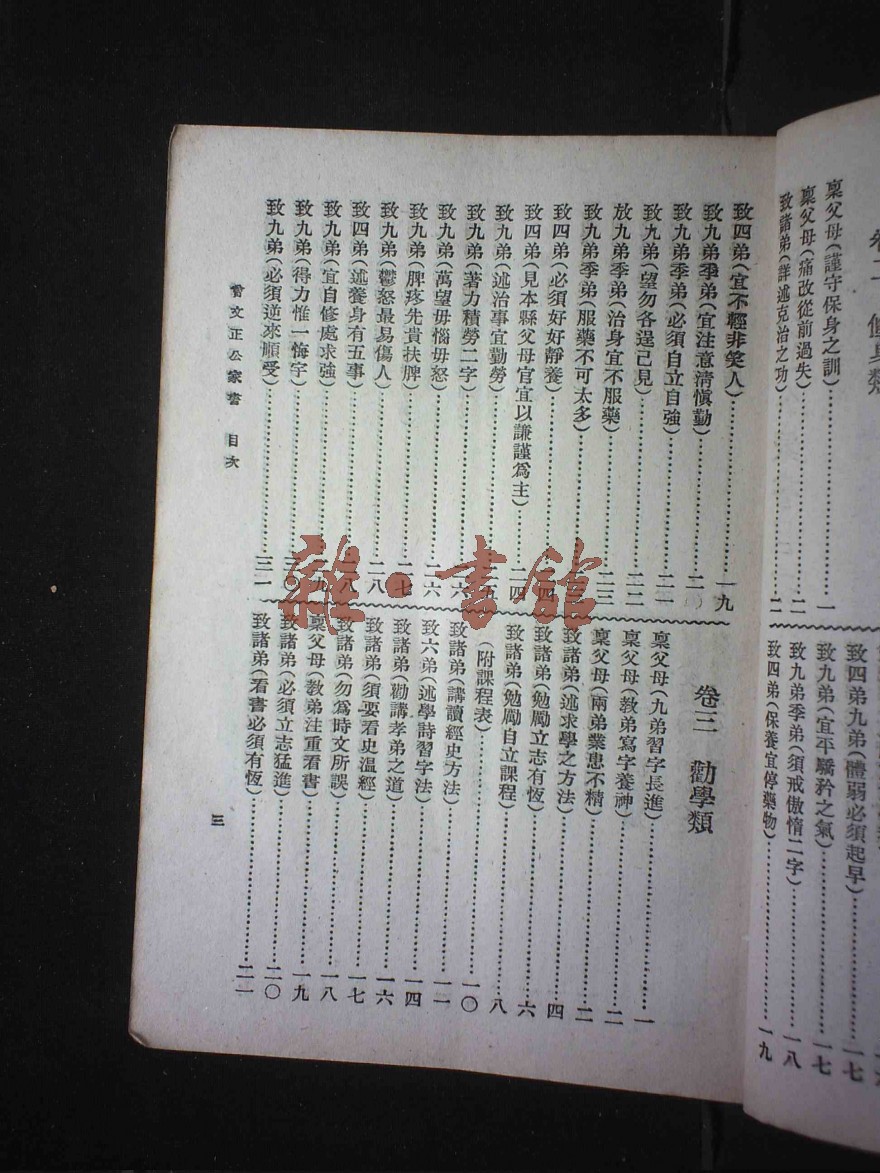 卷二 修身類
稟父母(謹守保身之訓)…一
稟父母(痛改從前過失)…二
致諸弟(詳述克治之功)…二
致四弟九弟(體弱必須起早)…一七
致九弟(宜平驕矜之氣)…一七
致九弟季弟(須戒傲惰二字)…一八
致四弟(保養宜停藥物)…一九
致四弟(宜不輕非笑人)…一九
致九弟季弟(宜注意清愼勤)…二〇
致九弟季弟(必須自立自強)…二一
致九弟(望勿各逞己見)…二二
放九弟季弟(治身宜不服藥)…二三
致九弟季弟(服藥不可太多)…二三
致四弟(必須好好靜養)…二四
致四弟(見本縣父母官宜以謙謹爲主)…二四
致九弟(述治事宜勤勞)…二五
致九弟(著力積勞二字)…二六
致九弟(萬望毋惱毋怒)…二六
致九弟(脾疼先貴扶脾)…二七
致九弟(鬱怒最易傷人)…二八
致四弟(述養身有五事)…二八
致九弟(宜自修處求強)…二九
致九弟(得力惟一悔字)…三〇
致九弟(必須逆來順受)…三一
卷三 勸學類
稟父母(九弟習字長進)…一
稟父母(教弟寫字養神)…二
稟父母(兩弟業患不精)…二
致諸弟(述求學之方法)…四
致諸弟(勉勵立志有恆)…六
致諸弟(勉勵自立課程)…八
(附課程表)…一〇
致諸弟(講讀經史方法)…一一
致六弟(述學詩習字法)…一四
致諸弟(勸講孝弟之道)…一六
致諸弟(須要看史溫經)…一七
致諸弟(勿爲時文所誤)…一八
稟父母(教弟注重看書)…一九
致諸弟(必須立志猛進)…二〇
致諸弟(看書必須有恆)…二一
曾文正公家書 目次
三
雜·書館